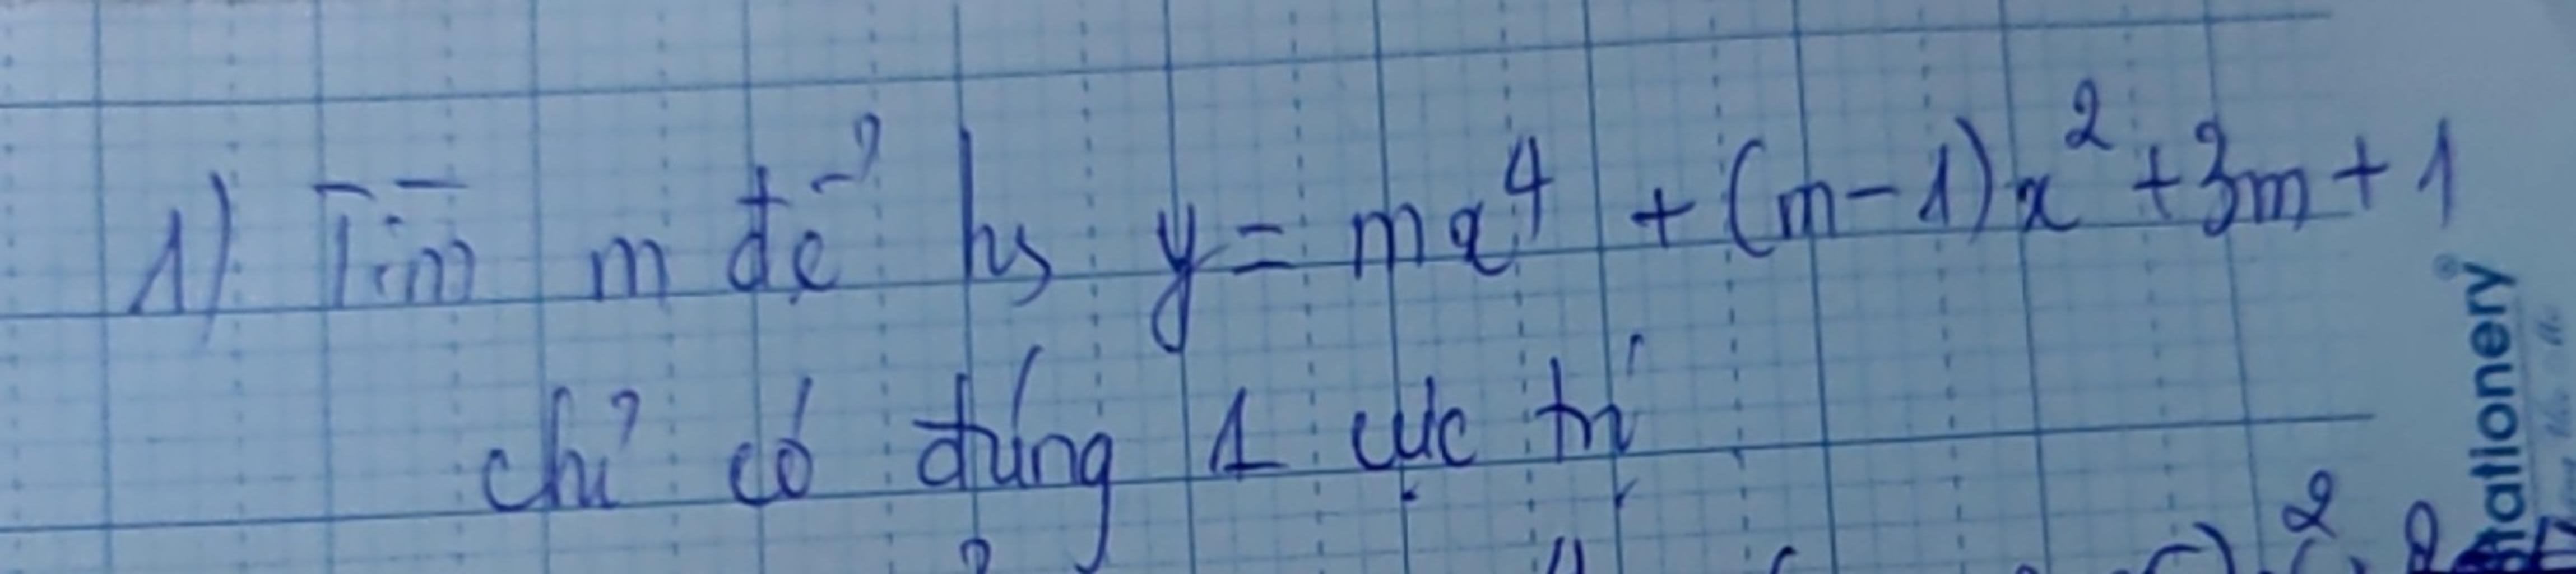 1) Tìm m để hs y = mx⁴ + (m-1)x² + 3m + 1
chỉ có đúng 1 cực trị
tationery